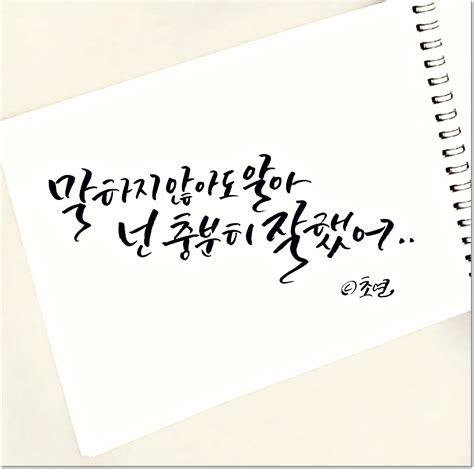 말하지 않아도 알아
넌 충분히 잘했어..
ⓒ초연